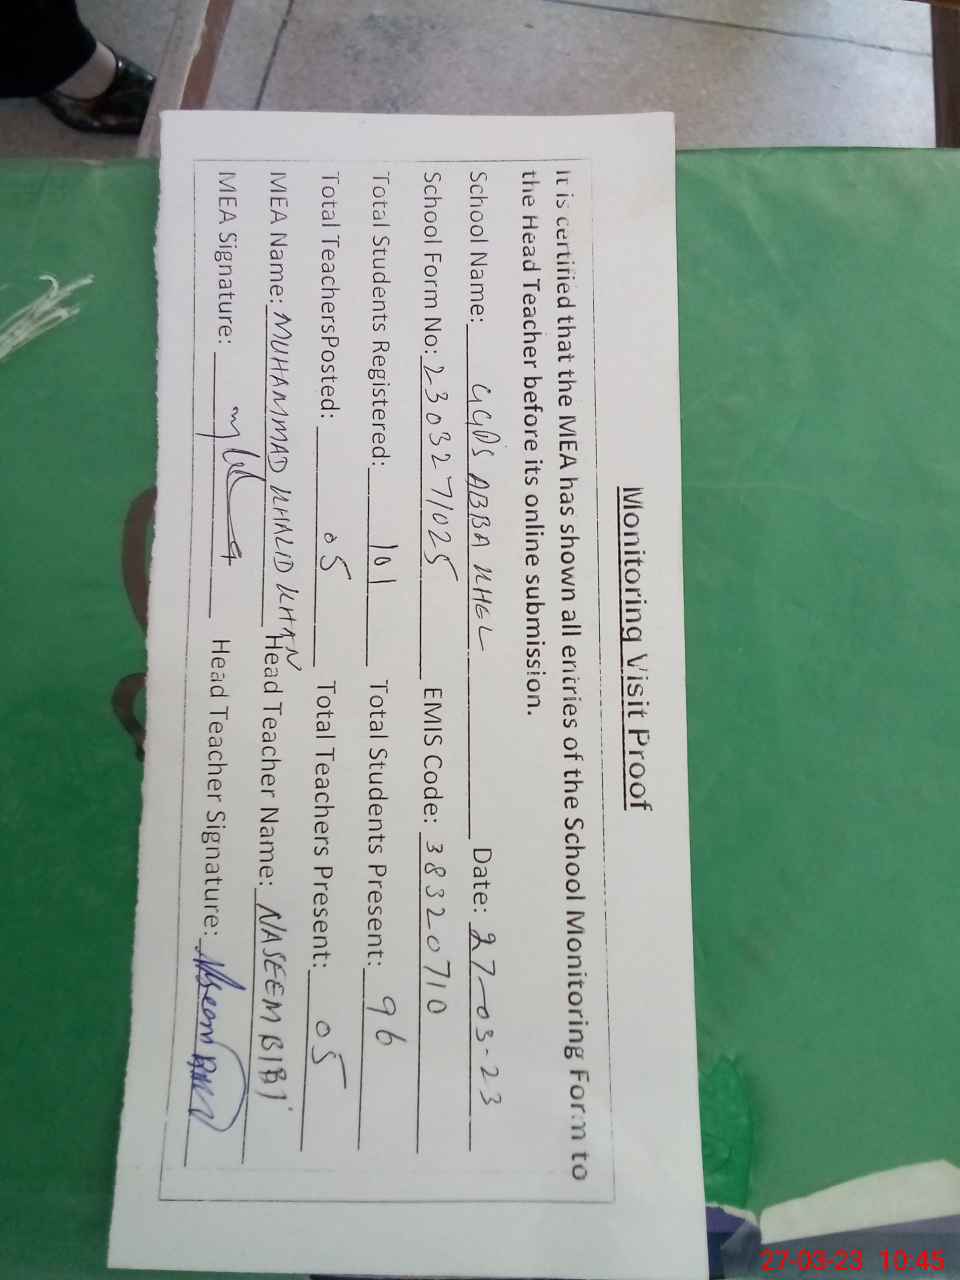 Monitoring Visit Proof
It is certified that the MEA has shown all entries of the School Monitoring Form to
the Head Teacher before its online submission.
School Name: GGPS ABBA KHEL Date: 27-03-23
School Form No: 2303271025 EMIS Code: 38320710
Total Students Registered: 101 Total Students Present: 96
Total TeachersPosted: 05 Total Teachers Present: 05
MEA Name: MUHAMMAD KHALID KHAN Head Teacher Name: NASEEM BIBI
MEA Signature: Head Teacher Signature: Naseem
27-03-23 10:45